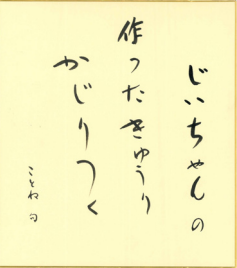 じいちゃんの
作ったきゅうり
かじりつく
ことね 句